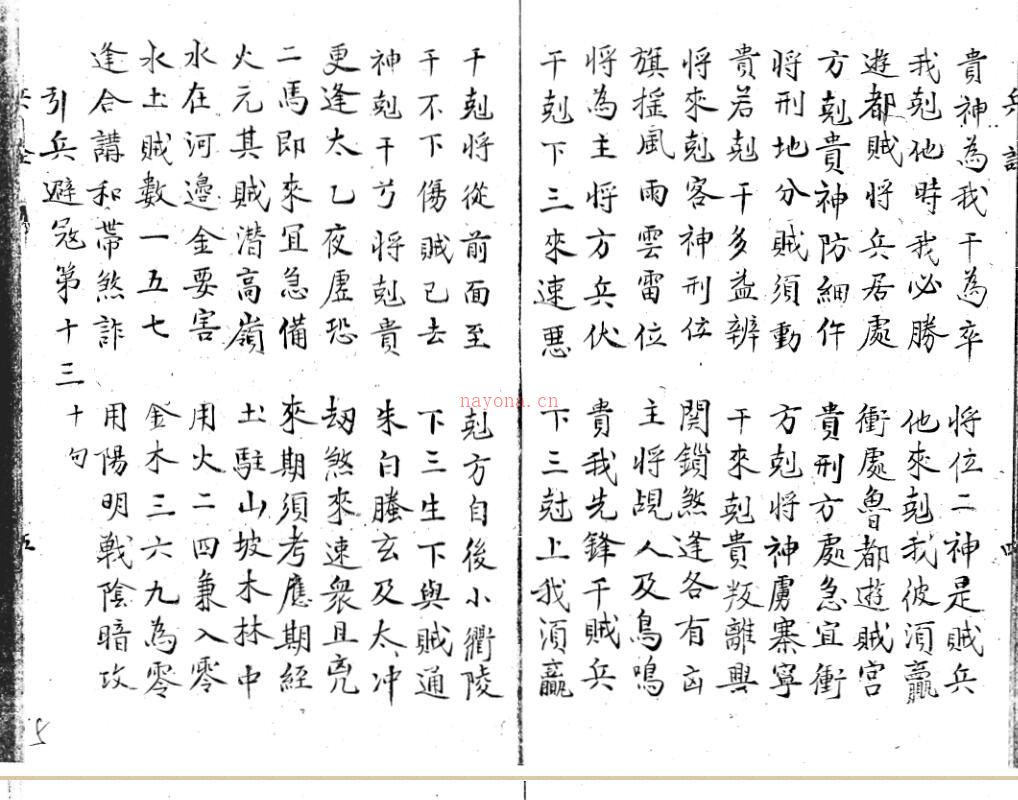 貴神為我干為卒 将位二神是賊兵
我剋他時我必勝 他來剋我彼湏贏
遊都賊将兵居處 衝處魯都遊賊宮
方剋貴神防細作 貴刑方處急宜衝
将刑地分賊須動 方剋将神虜寨寧
貴若剋干多益辨 干來剋貴叛離興
将來剋客神刑位 関鎖煞逢各有凶
旗摇風雨雲雷位 主将覘人及鳥鳴
将為主将方兵伏 貴我先鋒干賊兵
干剋下三來速悪 下三尅上我湏贏
干剋将從前面至 剋方自後小衢陵
干不下傷賊已去 下三生下與賊通
神剋干兮将剋貴 朱白螣玄及太冲
更逢太乙夜虛恐 刼煞來速衆且亮
二馬即來宜急備 來期須考應期經
火元其賊潛高嶺 土駐山坡木林中
水在河邊金要害 用火二四兼入零
水土賊數一五七 金木三六九為零
逢合講和帶煞詐 用陽明戰陰暗攻
引兵避冦第十三 十句
nayona.cn
5